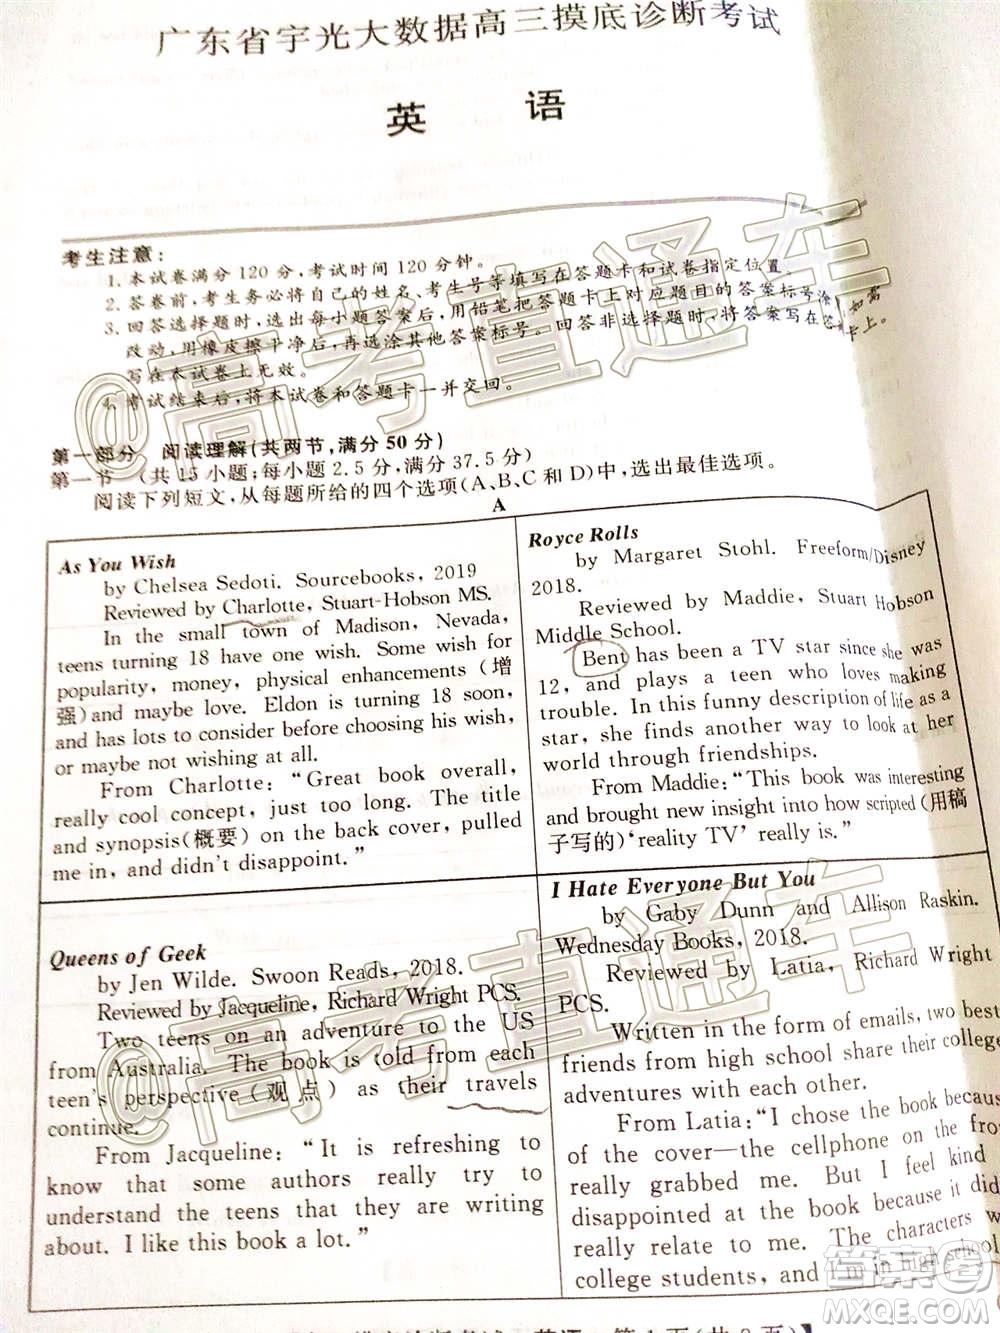 广东省宇光大数据高三摸底诊断考试
英 语
考生注意：
1. 本试卷满分120分，考试时间120分钟。
2. 答卷前，考生务必将自己的姓名、考生号等填写在答题卡和试卷指定位置。
3. 回答选择题时，选出每小题答案后，用铅笔把答题卡上对应题目的答案标号涂 如需
改动，用橡皮擦干净后，再选涂其他答案标号。回答非选择题时，将答案写在答 卡上。
写在本试卷上无效。
4. 考试结束后，将本试卷和答题卡一并交回。
第一部分 阅读理解（共两节，满分50分）
第一节 （共15小题；每小题2.5分，满分37.5分）
阅读下列短文，从每题所给的四个选项（A、B、C和D）中，选出最佳选项。
A
As You Wish
by Chelsea Sedoti. Sourcebooks, 2019
Reviewed by Charlotte, Stuart-Hobson MS.
In the small town of Madison, Nevada,
teens turning 18 have one wish. Some wish for
popularity, money, physical enhancements（增
强）and maybe love. Eldon is turning 18 soon,
and has lots to consider before choosing his wish,
or maybe not wishing at all.
From Charlotte: "Great book overall,
really cool concept, just too long. The title
and synopsis（概要）on the back cover, pulled
me in, and didn't disappoint."
Royce Rolls
by Margaret Stohl. Freeform/Disney
2018.
Reviewed by Maddie, Stuart Hobson
Middle School.
Bent has been a TV star since she was
12, and plays a teen who loves making
trouble. In this funny description of life as a
star, she finds another way to look at her
world through friendships.
From Maddie: "This book was interesting
and brought new insight into how scripted（用稿
子写的）'reality TV' really is."
Queens of Geek
by Jen Wilde. Swoon Reads, 2018.
Reviewed by Jacqueline, Richard Wright PCS.
Two teens on an adventure to the US
from Australia. The book is told from each
teen's perspective（观点）as their travels
continue.
From Jacqueline: "It is refreshing to
know that some authors really try to
understand the teens that they are writing
about. I like this book a lot."
I Hate Everyone But You
by Gaby Dunn and Allison Raskin.
Wednesday Books, 2018.
Reviewed by Latia, Richard Wright
PCS.
Written in the form of emails, two best
friends from high school share their college
adventures with each other.
From Latia: "I chose the book because
of the cover—the cellphone on the front
really grabbed me. But I feel kind
disappointed at the book because it did
really relate to me. The characters w
college students, and I'm in high school
@高考直通车
@高考直通车
答案圈
MXQE.COM